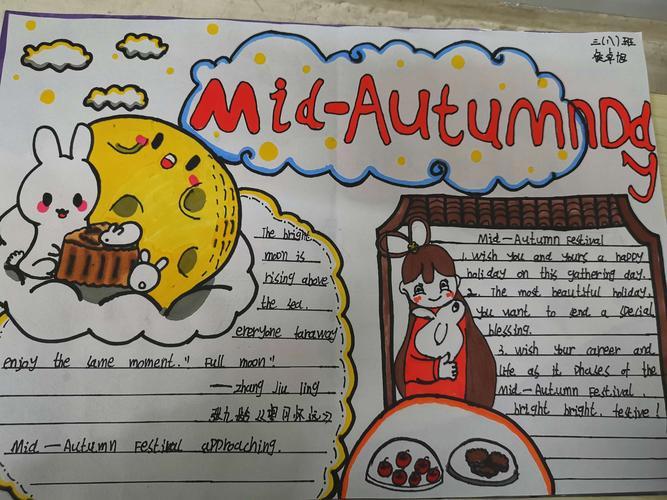 三(八)班
Mid-Autumn Day
The bright
moon is
rising above
the sea.
everyone faraway
enjoy the same moment." Full moon"!
—zhang Jiu ling
张九龄《望月怀远》
Mid—Autumn Festival approaching.
Mid—Autumn Festival
1. wish you and yours a happy
holiday on this gathering day.
2. The most beautiful holiday.
You want to send a special
blessing.
3. wish your career and
life as it phases of the
Mid-Autumn Festival,
bright bright, festive!